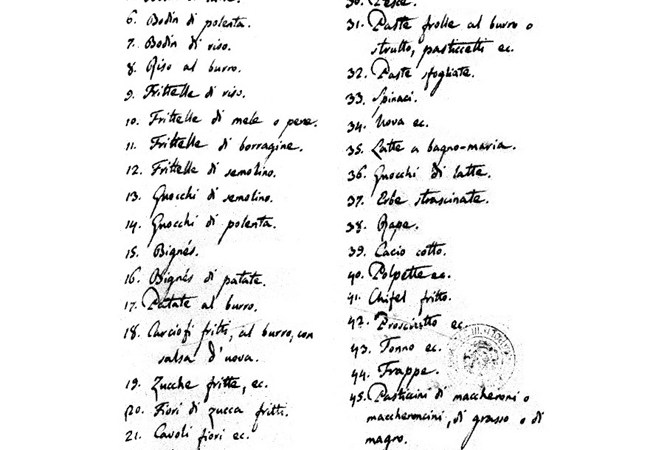 6. Bodin di polenta.
7. Bodin di riso.
8. Riso al burro.
9. Frittelle di riso.
10. Frittelle di mele o pere.
11. Frittelle di borragine.
12. Frittelle di semolino.
13. Gnocchi di semolino.
14. Gnocchi di polenta.
15. Bignés.
16. Bignés di patate.
17. Patate al burro.
18. Carciofi fritti, al burro, con
salsa d'uova.
19. Zucche fritte, ec.
20. Fiori di zucca fritti.
21. Cavoli fiori ec.
30. Pesce.
31. Paste frolle al burro o
strutto, pasticcetti ec.
32. Paste sfogliate.
33. Spinaci.
34. Uova ec.
35. Latte a bagno-maria.
36. Gnocchi di latte.
37. Erbe strascinate.
38. Rape.
39. Cacio cotto.
40. Polpette ec.
41. Chifel fritto.
42. Prosciutto ec.
43. Tonno ec.
44. Frappe.
45. Pasticcini di maccheroni o
maccheroncini, di grasso o di
magro.